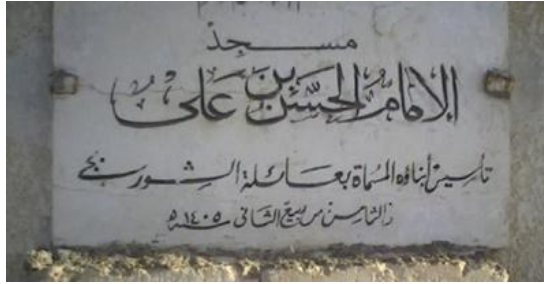 مسجد
الإمام الحسن بن على
تأسيس أبناؤه المسماة بعائلة الشوربجى
فى الثامن من ربيع الثانى سنة ١٤٠٥ هـ